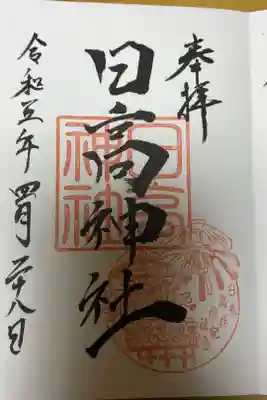 奉拝
日高神社
日高神社
令和五年四月二十八日